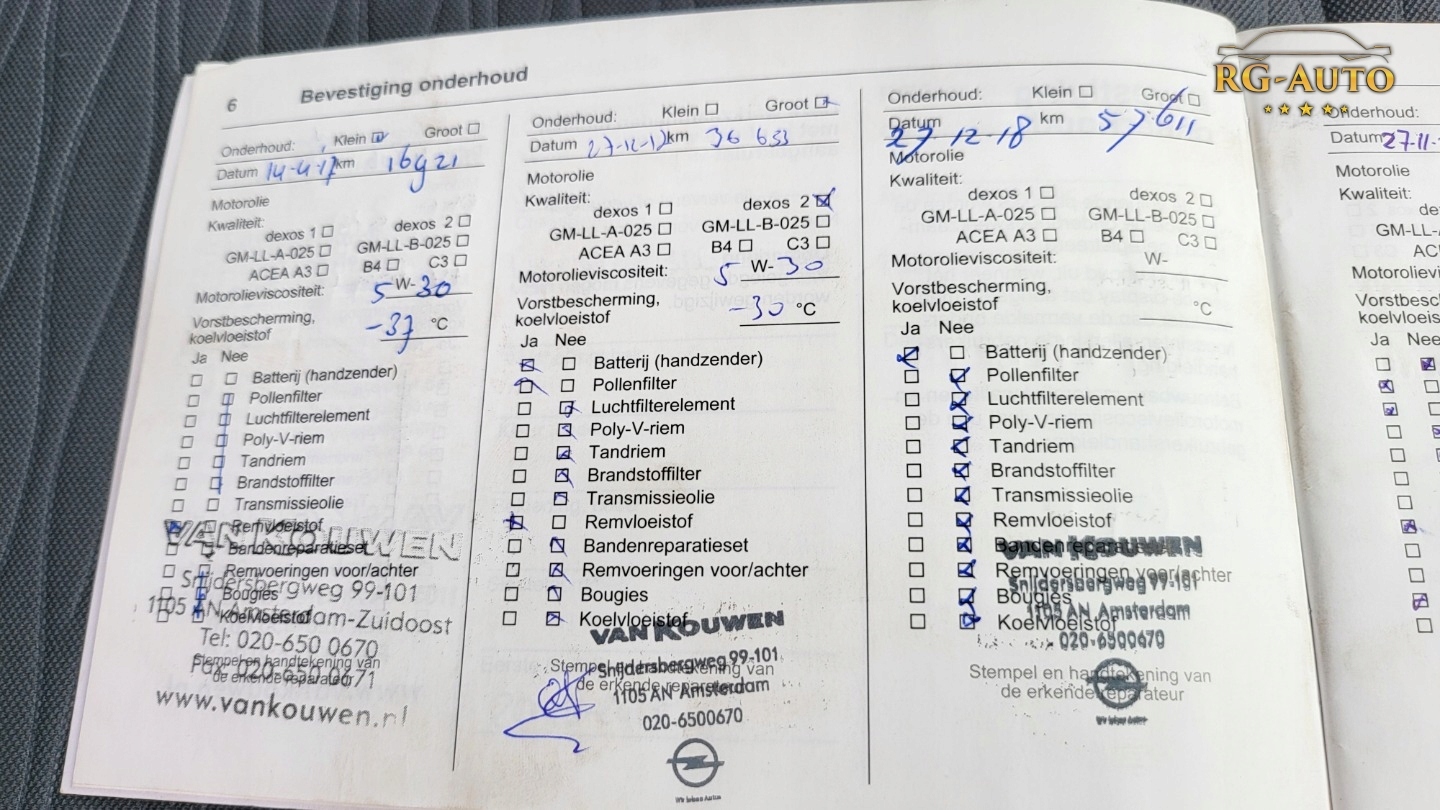 RG-AUTO
6 Bevestiging onderhoud
Onderhoud: Klein Groot
Datum 14-4-17 km 16921
Motorolie
Kwaliteit:
dexos 1 dexos 2
GM-LL-A-025 GM-LL-B-025
ACEA A3 B4 C3
Motorolieviscositeit: 5 W-30
Vorstbescherming,
koelvloeistof -37 °C
Ja Nee
Batterij (handzender)
Pollenfilter
Luchtfilterelement
Poly-V-riem
Tandriem
Brandstoffilter
Transmissieolie
Remvloeistof
VAN KOUWEN
Bandenreparatieset
Remvoeringen voor/achter
Snijdersbergweg 99-101
Bougies
1105 AN Amsterdam-Zuidoost
Koelvloeistof
Tel: 020-650 0670
Stempel en handtekening van
de erkende reparateur
Fax: 020-650 0671
www.vankouwen.nl
Onderhoud: Klein Groot
Datum 27-12-17 km 36 653
Motorolie
Kwaliteit:
dexos 1 dexos 2
GM-LL-A-025 GM-LL-B-025
ACEA A3 B4 C3
Motorolieviscositeit: 5 W-30
Vorstbescherming,
koelvloeistof -30 °C
Ja Nee
Batterij (handzender)
Pollenfilter
Luchtfilterelement
Poly-V-riem
Tandriem
Brandstoffilter
Transmissieolie
Remvloeistof
Bandenreparatieset
Remvoeringen voor/achter
Bougies
Koelvloeistof
VAN KOUWEN
Stempel en handtekening van
de erkende reparateur
Snijdersbergweg 99-101
1105 AN Amsterdam
020-6500670
Wir leben Autos
Onderhoud: Klein Groot
Datum 27-12-18 km 57611
Motorolie
Kwaliteit:
dexos 1 dexos 2
GM-LL-A-025 GM-LL-B-025
ACEA A3 B4 C3
Motorolieviscositeit: W-
Vorstbescherming,
koelvloeistof °C
Ja Nee
Batterij (handzender)
Pollenfilter
Luchtfilterelement
Poly-V-riem
Tandriem
Brandstoffilter
Transmissieolie
Remvloeistof
Bandenreparatieset
VAN KOUWEN
Remvoeringen voor/achter
Snijdersbergweg 99-101
Bougies
1105 AN Amsterdam
Koelvloeistof
020-6500670
Stempel en handtekening van
de erkende reparateur
Wir leben Autos
Onderhoud:
Datum 27-11-
Motorolie
Kwaliteit:
de
GM-LL-A
AC
Motorolievi
Vorstbesch
koelvloeis
Ja Nee